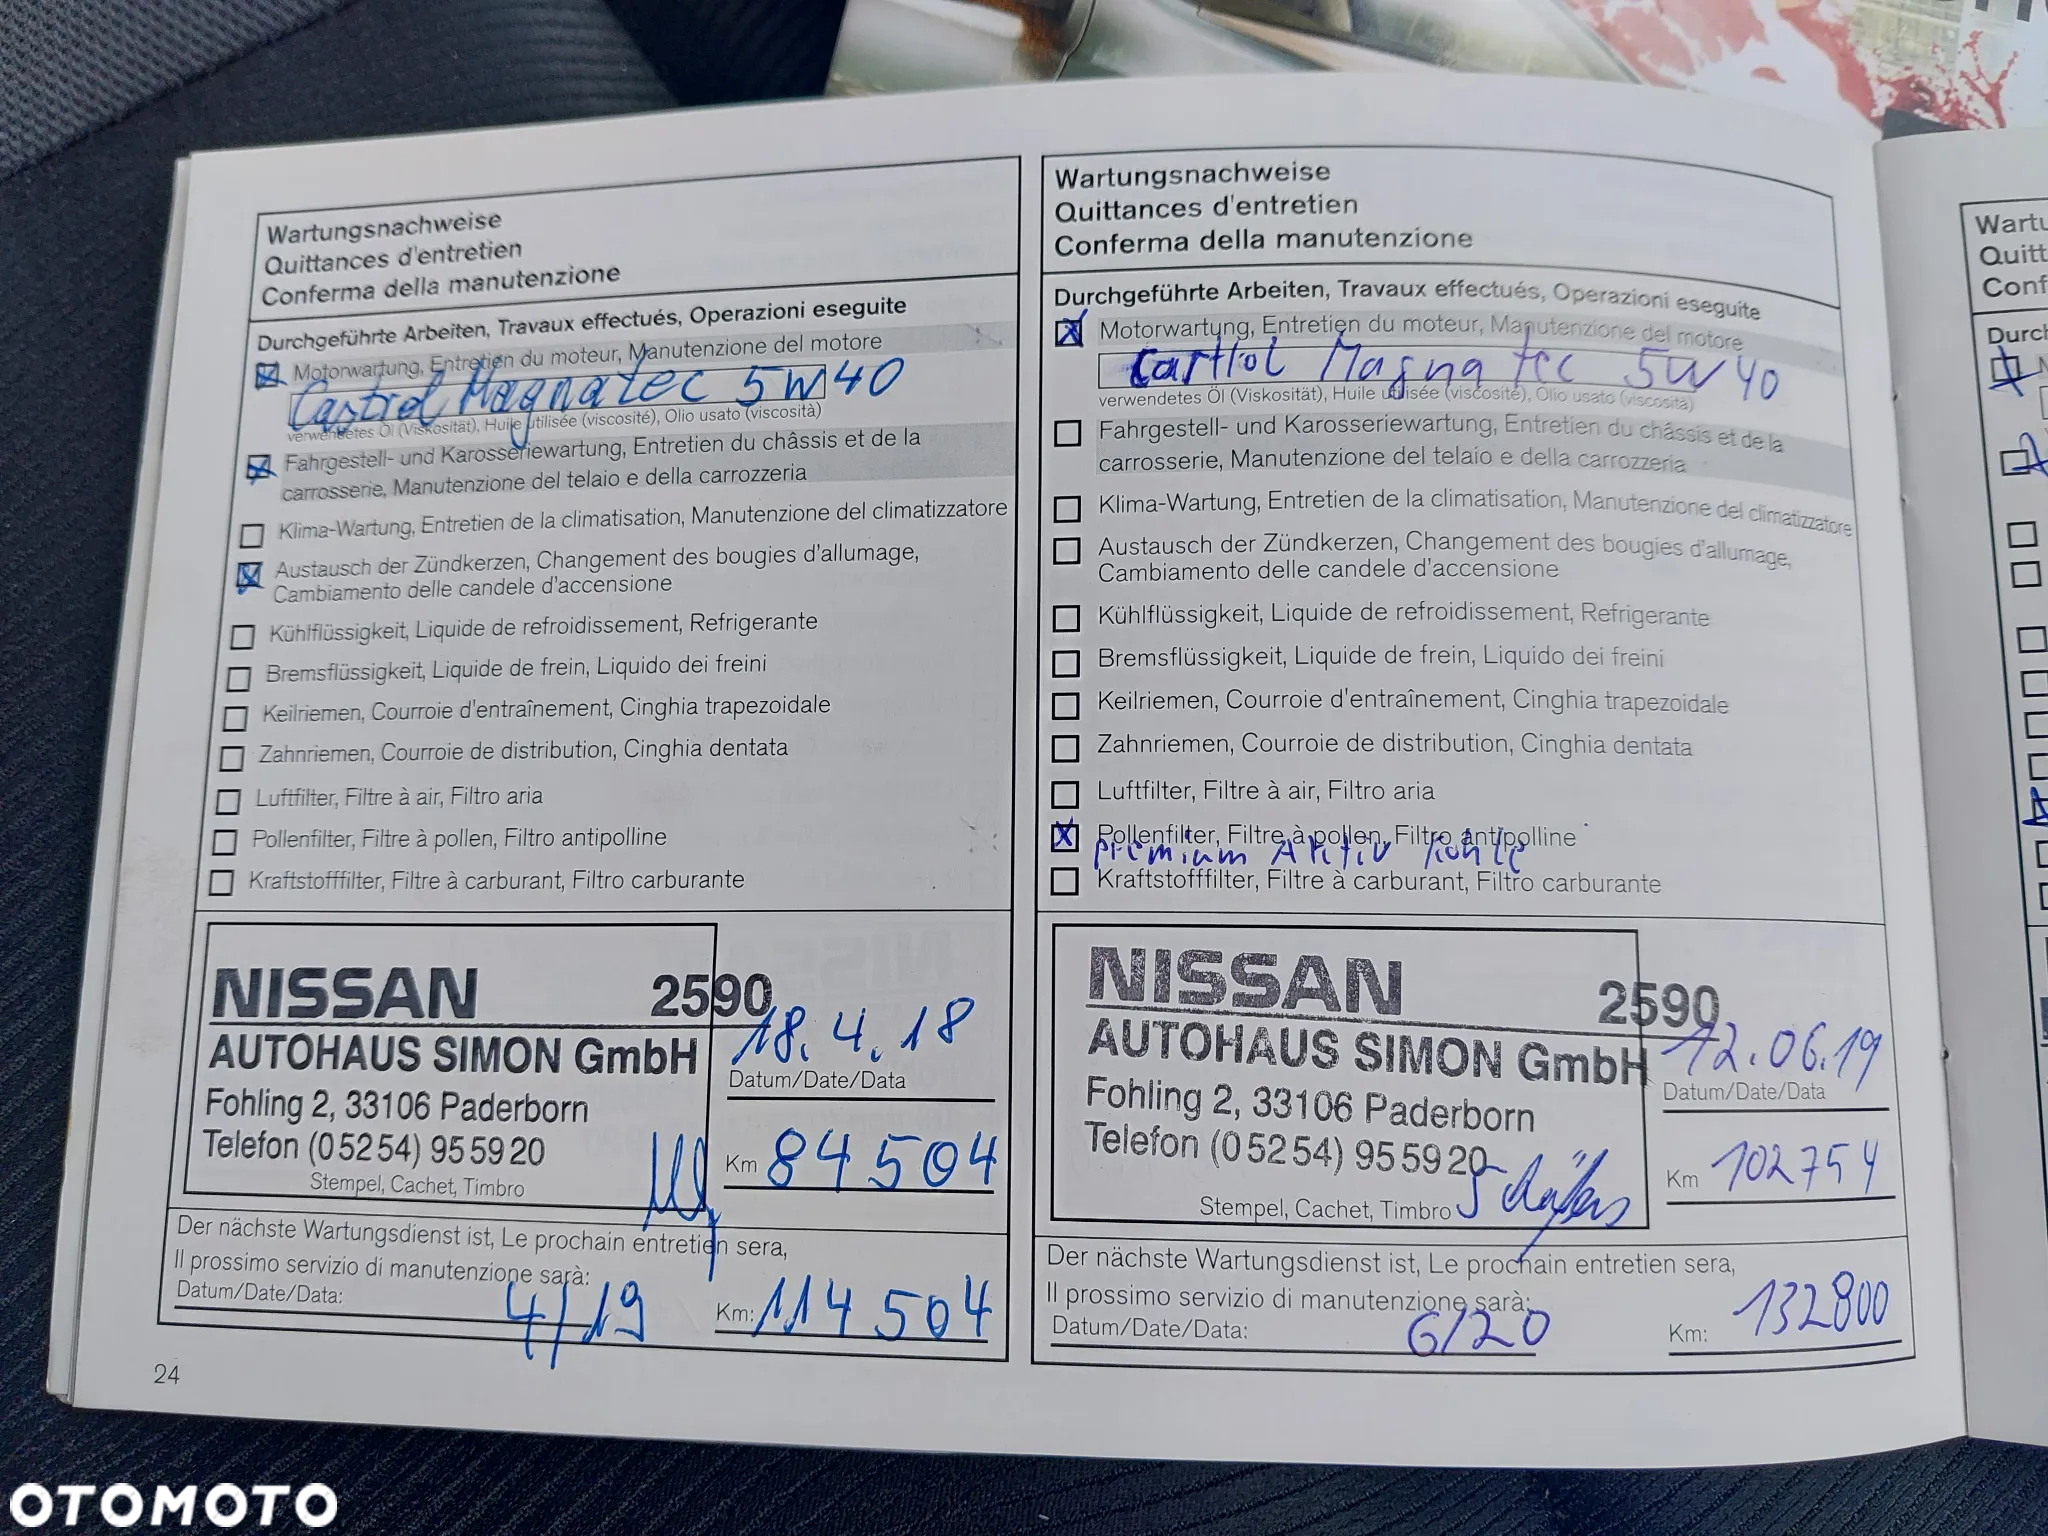 Wartungsnachweise
Quittances d'entretien
Conferma della manutenzione
Durchgeführte Arbeiten, Travaux effectués, Operazioni eseguite
Motorwartung, Entretien du moteur, Manutenzione del motore
Castrol Magnatec 5W40
verwendetes Öl (Viskosität), Huile utilisée (viscosité), Olio usato (viscosità)
Fahrgestell- und Karosseriewartung, Entretien du châssis et de la
carrosserie, Manutenzione del telaio e della carrozzeria
Klima-Wartung, Entretien de la climatisation, Manutenzione del climatizzatore
Austausch der Zündkerzen, Changement des bougies d'allumage,
Cambiamento delle candele d'accensione
Kühlflüssigkeit, Liquide de refroidissement, Refrigerante
Bremsflüssigkeit, Liquide de frein, Liquido dei freini
Keilriemen, Courroie d'entraînement, Cinghia trapezoidale
Zahnriemen, Courroie de distribution, Cinghia dentata
Luftfilter, Filtre à air, Filtro aria
Pollenfilter, Filtre à pollen, Filtro antipolline
Kraftstofffilter, Filtre à carburant, Filtro carburante
NISSAN 2590
AUTOHAUS SIMON GmbH
Fohling 2, 33106 Paderborn
Telefon (0 52 54) 95 59 20
Stempel, Cachet, Timbro
18.4.18
Datum/Date/Data
Km 84504
Der nächste Wartungsdienst ist, Le prochain entretien sera,
Il prossimo servizio di manutenzione sarà:
Datum/Date/Data: 4/19 Km: 114504
24
Wartungsnachweise
Quittances d'entretien
Conferma della manutenzione
Durchgeführte Arbeiten, Travaux effectués, Operazioni eseguite
Motorwartung, Entretien du moteur, Manutenzione del motore
Magnatec 5W40
verwendetes Öl (Viskosität), Huile utilisée (viscosité), Olio usato (viscosità)
Fahrgestell- und Karosseriewartung, Entretien du châssis et de la
carrosserie, Manutenzione del telaio e della carrozzeria
Klima-Wartung, Entretien de la climatisation, Manutenzione del climatizzatore
Austausch der Zündkerzen, Changement des bougies d'allumage,
Cambiamento delle candele d'accensione
Kühlflüssigkeit, Liquide de refroidissement, Refrigerante
Bremsflüssigkeit, Liquide de frein, Liquido dei freini
Keilriemen, Courroie d'entraînement, Cinghia trapezoidale
Zahnriemen, Courroie de distribution, Cinghia dentata
Luftfilter, Filtre à air, Filtro aria
Pollenfilter, Filtre à pollen, Filtro antipolline
Premium Aktiv Kohle
Kraftstofffilter, Filtre à carburant, Filtro carburante
NISSAN 2590
AUTOHAUS SIMON GmbH
Fohling 2, 33106 Paderborn
Telefon (0 52 54) 95 59 20
Stempel, Cachet, Timbro
12.06.19
Datum/Date/Data
Km 102754
Der nächste Wartungsdienst ist, Le prochain entretien sera,
Il prossimo servizio di manutenzione sarà:
Datum/Date/Data: 6/20 Km: 132800
Wartu
Quitt
Conf
Durch
OTOMOTO